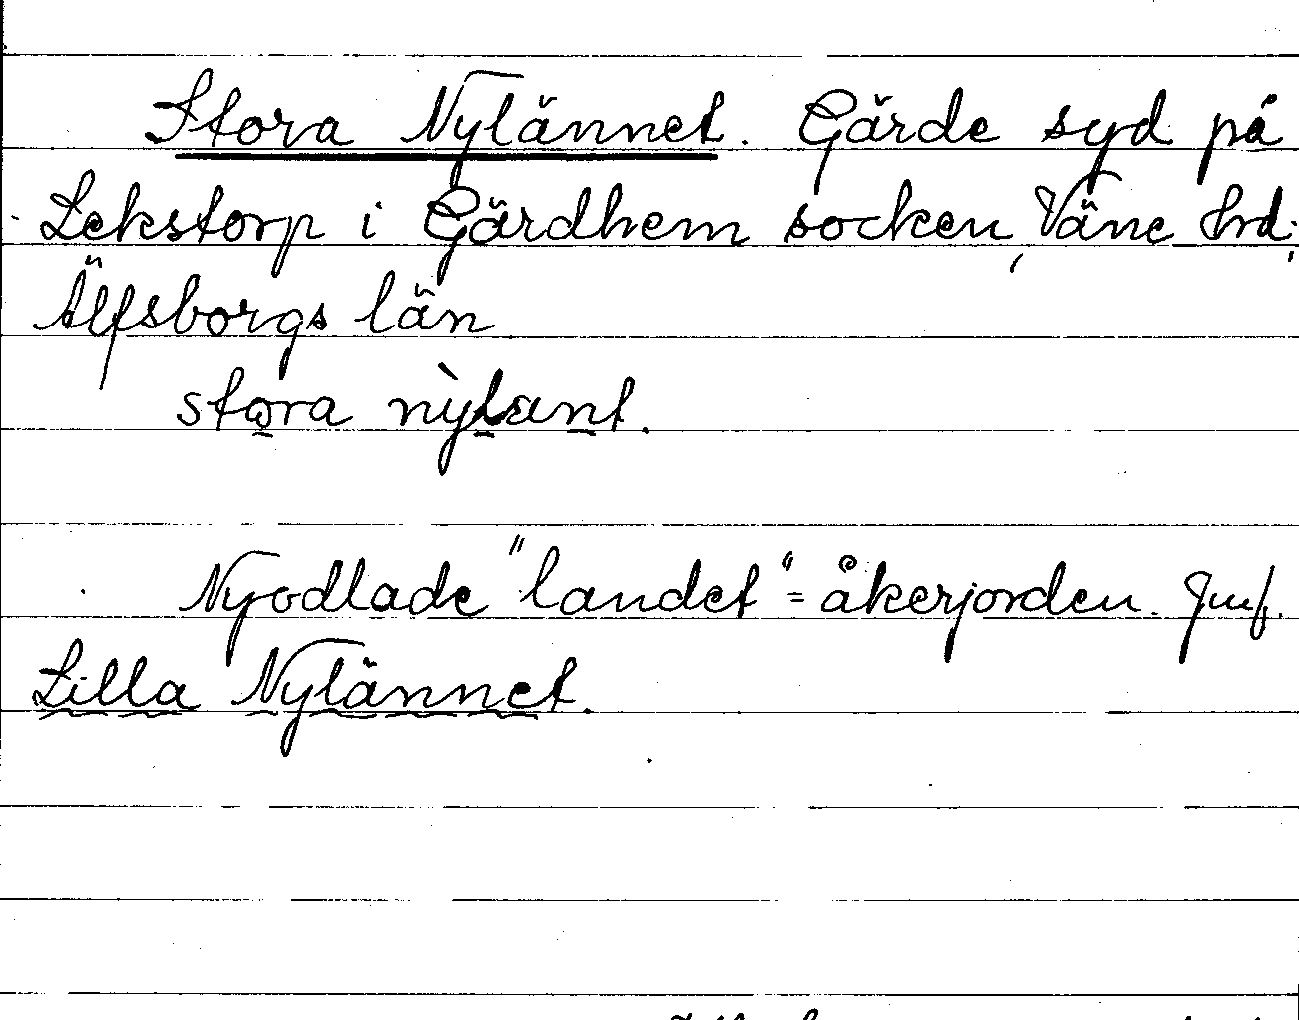 Stora Nylännet. Gärde syd på
Lekstorp i Gärdhem socken, Väne hrd;
Älfsborgs län
stora nỳlant.
Nyodlade "landet" = åkerjorden. Jmf.
Lilla Nylännet.